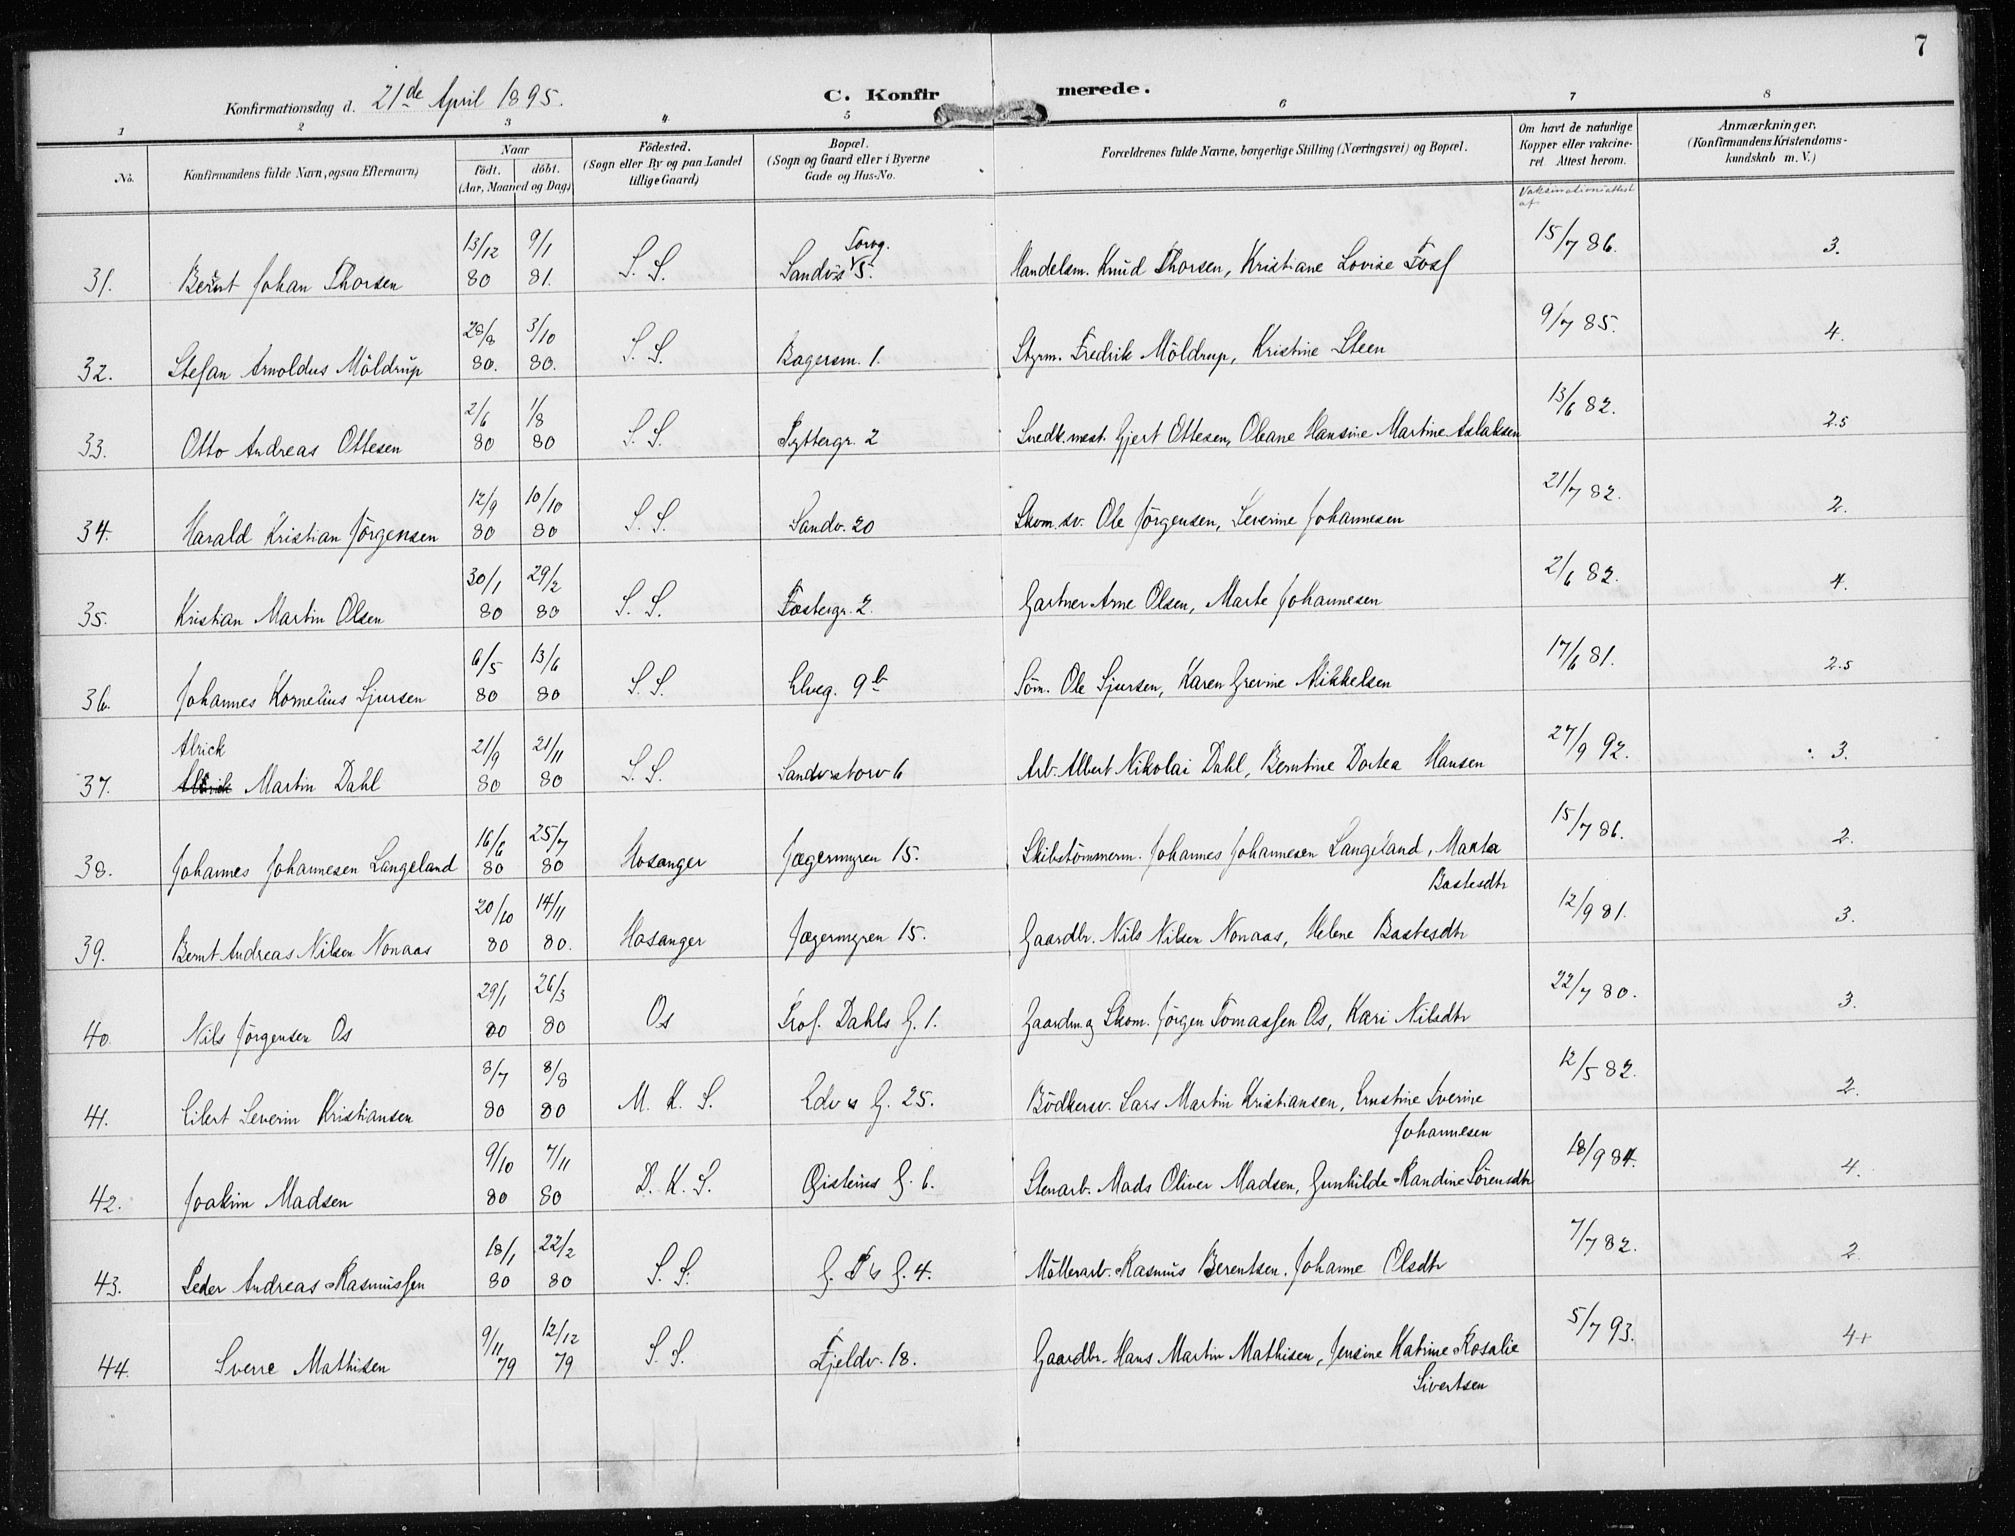 7
Konfirmationsdag d. 21de April 1895. C. Konfirmerede.
1 2 3 4 5 6 7 8
No. Konfirmandens fulde Navn, ogsaa Efternavn) Naar födt. döbt. (Aar, Maaned og Dag) Födested. (Sogn eller By og paa Landet tillige Gaard) Bopæl. (Sogn og Gaard eller i Byerne Gade og Hus-No. Forældrenes fulde Navne, borgerlige Stilling (Næringsvei) og Bopæl. Om havt de naturlige Kopper eller vakcineret Attest herom. Anmærkninger. (Konfirmandens Kristendomskundskab m. V.)
Vaksinationsattest af
31. Bernt Johan Thorsen 13/12 80 9/1 81. S. S. Sandvs Torvg. 5. Handelsm. Knud Thorsen, Kristiane Lovise Foss 15/7 86. 3.
32. Stefan Arnoldus Möldrup 28/8 80. 3/10 80. S. S. Bagersm. 1. Styrm. Fredrik Möldrup, Kristine Steen 9/7 85. 4.
33. Otto Andreas Ottesen 2/6 80 1/8 80 S. S. Pyttergr. 2 Snedk.mest. Gjert Ottesen, Oleane Hansine Martine Aslaksen 13/6 82. 2.5
34. Harald Kristian Jörgensen 12/9 80 10/10 80 S. S. Sandv. 20 Skom. sv. Ole Jörgensen, Severine Johannesen 21/7 82. 2.
35. Kristian Martin Olsen 30/1 80 29/2 80 S. S. Fostergr. 2. Gartner Arne Olsen, Marte Johannesen 2/6 82. 4.
36. Johannes Kornelius Sjursen 6/5 80 13/6 80 S. S. Elveg. 9b Söm. Ole Sjursen, Karen Grevine Mikkelsen 17/6 81. 2.5
Alrick
37. Martin Dahl 21/9 80 21/11 80 S. S. Sandvstorv 6 Arb. Albert Nikolai Dahl, Berntine Dortea Hansen 27/9 92. 3.
38. Johannes Johannesen Langeland 16/6 80 25/7 80 Hosanger Jægermyren 15. Skibstömmerm. Johannes Johannesen Langeland, Marta 15/7 86. 2.
Bastesdtr
39. Bernt Andreas Nilsen Nonaas 20/10 80 14/11 80. Hosanger Jægermyren 15. Gaardbr. Nils Nilsen Nonaas, Helene Bastesdtr 12/9 81. 3.
40. Nils Jörgensen Os 29/1 80 26/3 80 Os Prof. Dahls G. 1. Gaardm. og Skom. Jörgen Tomassen Os, Kari Nilsdtr 22/7 80. 3.
41. Eilert Severin Kristiansen 8/7 80 8/8 80 M. K. S. Edvs G. 25. Bödkersv. Lars Martin Kristiansen, Ernstine Iverine 12/5 82. 2.
Johannesen
42. Joakim Madsen 9/10 80 7/11 80 D. K. S. Øisteins G. 6. Stenarb. Mads Oliver Madsen, Gunhilde Randine Sörensdtr 18/9 84. 4.
43. Peder Andreas Rasmussen 18/1 80 22/2 80 S. S. G. Ps G. 4. Möllerarb. Rasmus Berentsen, Johanne Olsdtr 7/7 82. 2
44. Sverre Mathisen 9/11 79 12/12 79 S. S. Fjeldv. 18. Gaardbr. Hans Martin Mathisen, Jensine Katrine Rosalie 5/7 93. 4+
Sivertsen